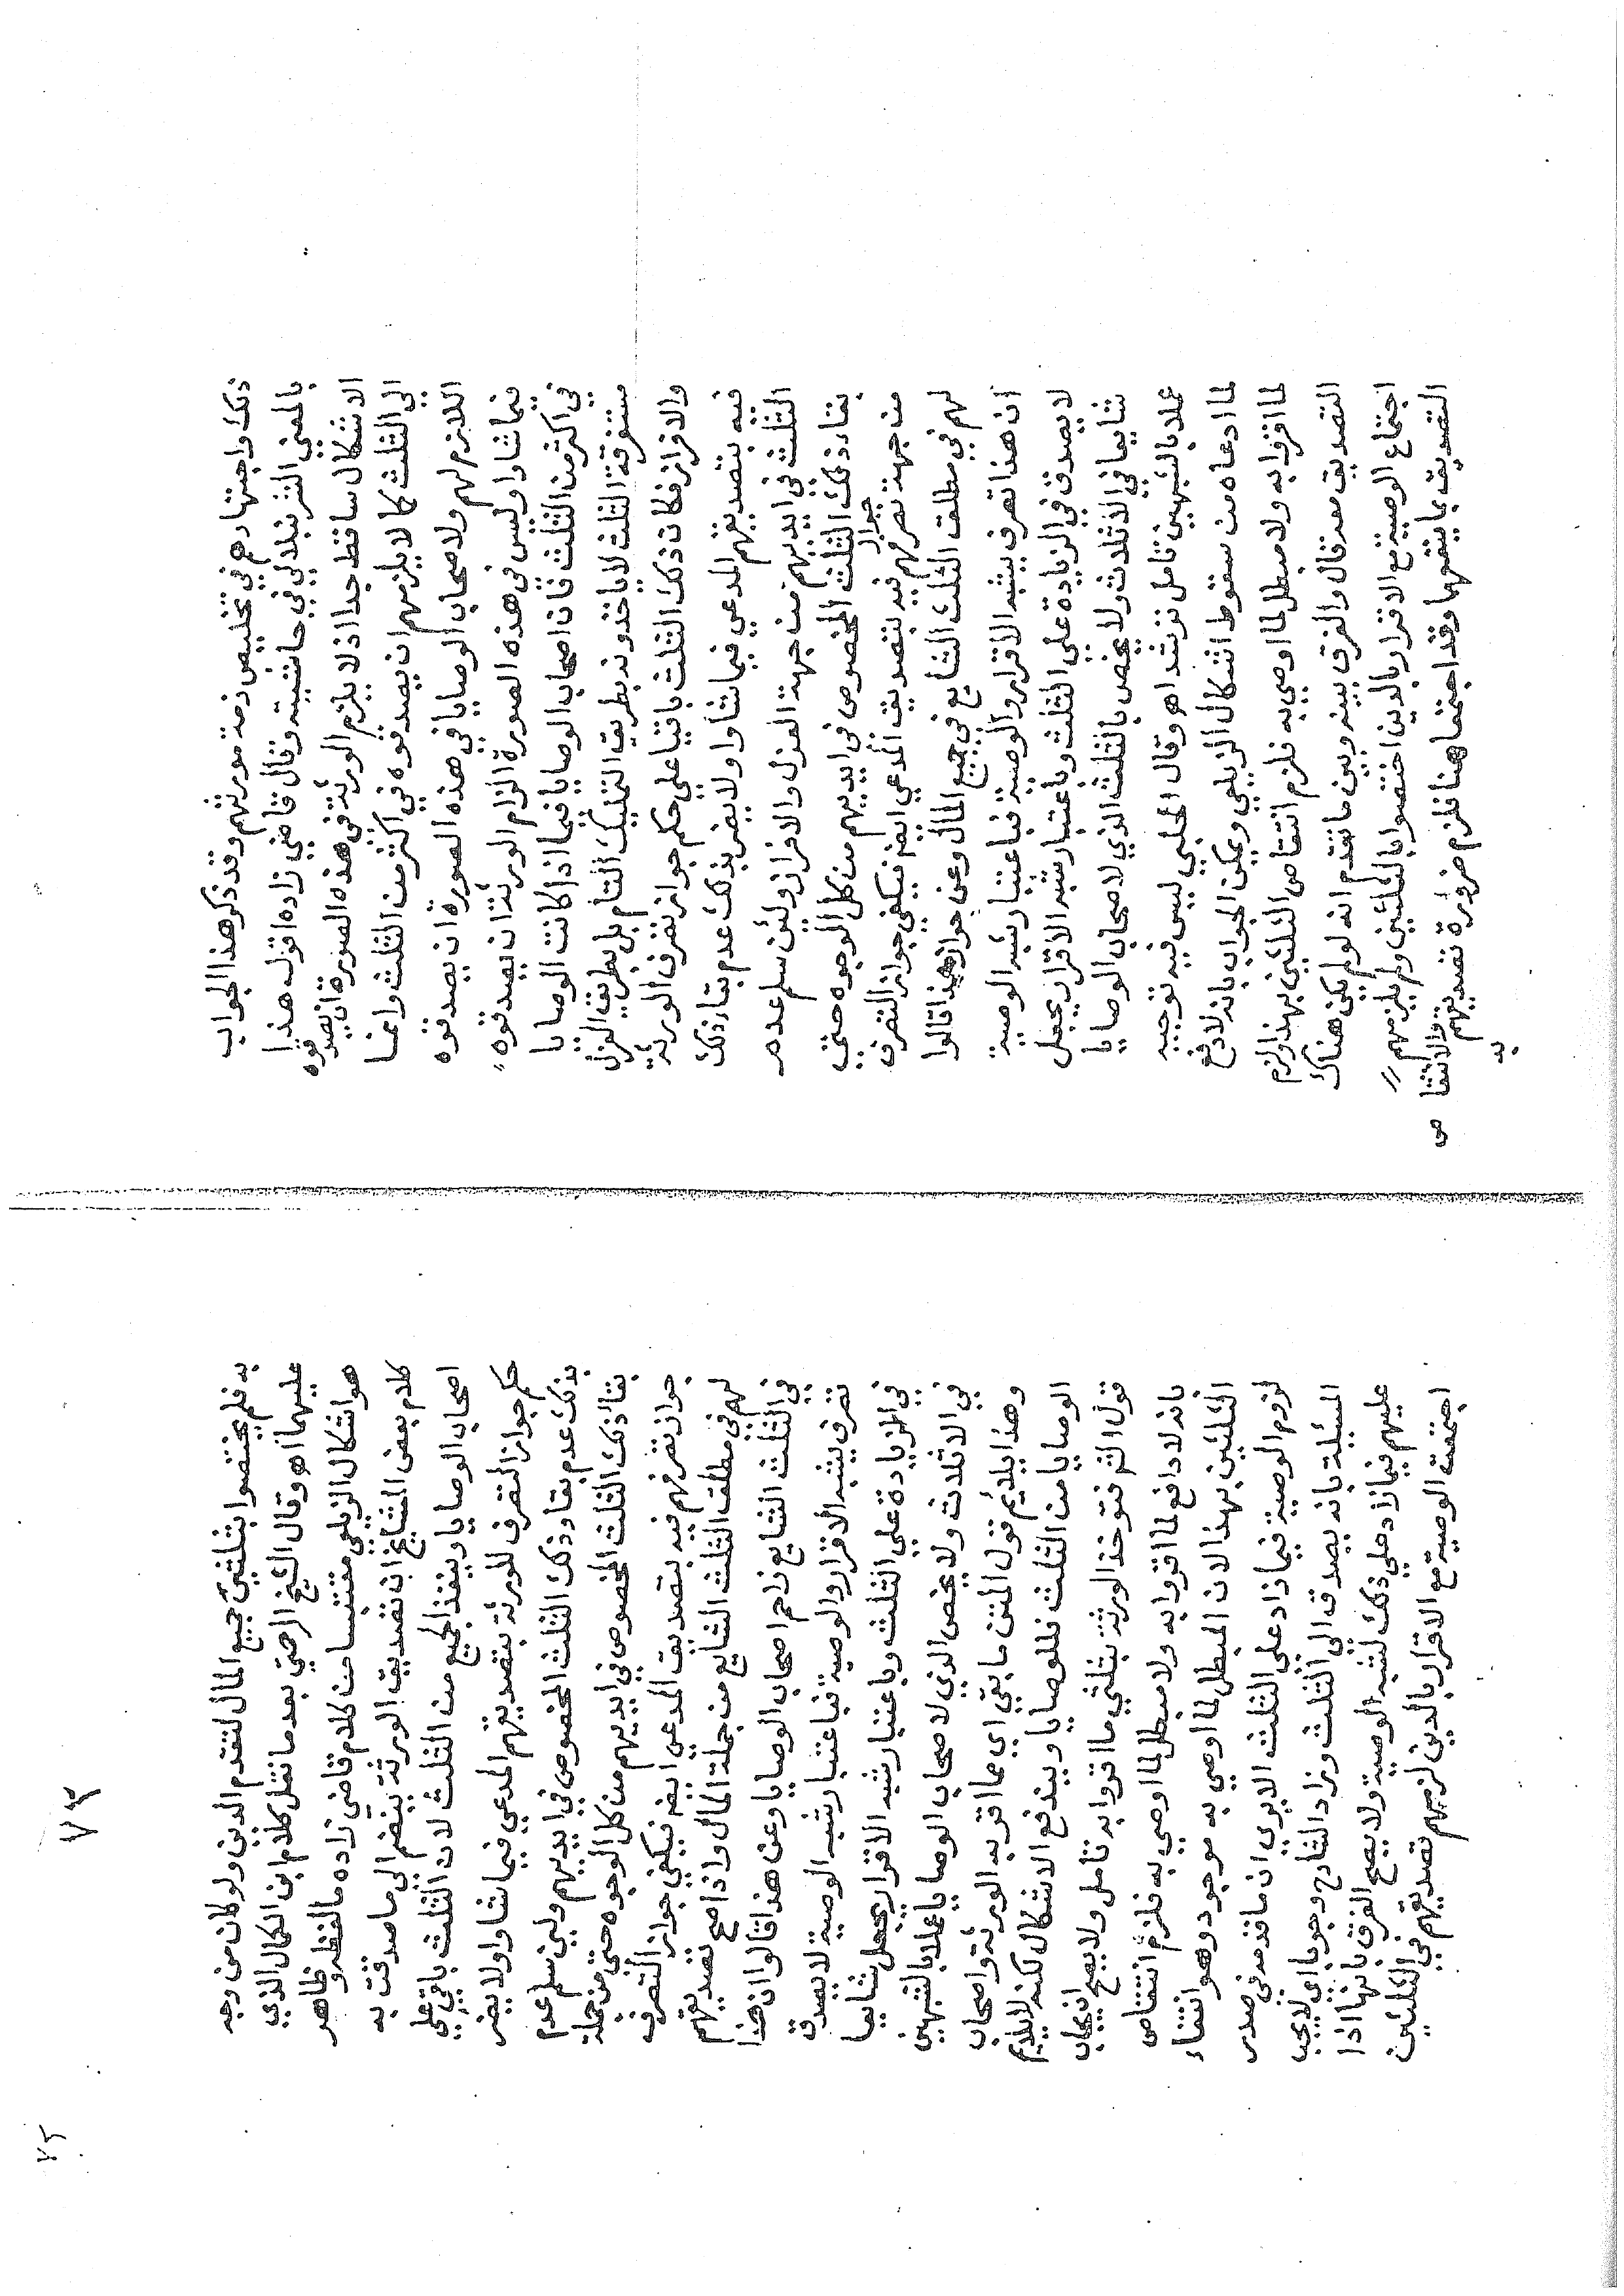 ذلك واجتهادهم في تخليص ذمة مورثهم وقد ذكر هذا الجواب
بالمعني الشرنبلالي في حاشيته وقال قاضي زاده اقول هذا
الاشكال ساقط جدا اذ لا يلزم الورثة في هذه الصورة ان يصدقوه
الي الثلث كما لا يلزمهم ان يصدقوه في اكثر من الثلث وانما
اللازم لهم ولاصحاب الوصايا في هذه الصورة ان يصدقوه
فيما شاوا وليس في هذه الصورة الزام الورثة ان يصدقوه
في اكثر من الثلث فان اصحاب الوصايا فيما اذا كانت الوصايا
مستغرقة الثلث لا ياخذونه بطريق التمليك التام بل بطريق العزل
والافراز فكان ذلك الثلث باقيا علي حكم جواز تصرف الورثة
فيه بتصديقهم المدعي فيما شاوا ولا يضر بذلك عدم بقاء ذلك
الثلث في ايديهم من جهة العزل والافراز ولئن سلم عدم
بقاء ذلك الثلث المخصوص في ايديهم من كل الوجوه حتي
من جهة جواز تصرفهم فيه بتصديق المدعي ايضا فيكفي جواز التصرف
لهم في مطلق الثلث الشايع في جميع المال وعن هذا قالوا
ان هذا تصرف يشبه الاقرار والوصية فباعتبار شبه الوصية
لا يصدق في الزيادة علي الثلث وباعتبار شبه الاقرار يجعل
شايعا في الاثلاث ولا يخص بالثلث الذي لاصحاب الوصايا
عملا بالشبهين تامل ترشد اه وقال الحلبي ليس فيه توجيه
لما ادعاه من سقوط اشكال الزيلعي ويمكن الجواب بانه لا دافع
لما اقروا به ولا مبطل لما اوصي به فلزم انتقاص الثلثين بهذا ولزم
التصديق معه قال والفرق بينه وبين ما تقدم انه لو لم يكن هناك
اجتماع الوصية مع الاقرار بالدين اختصوا بالثلثين ولم يلزمهم
التصديق بما ينقصها وقد اجتمعا هنا فلزم ضرورة تصديقهم والانتقاص
به
٧٣
به فلم يختصوا بثلثي جميع المال لتقدم الدين ولو كان من وجه
عليهما اه وقال الشيخ الرحمتي بعد ما نقل كلام ابن الكمال الذي
هو اشكال الزيلعي مقتبسا من كلام قاضي زاده ما لفظه وظاهر
كلام بعض المشايخ ان تصديق الورثة ينضم الي ما صدقت به
اصحاب الوصايا وينفذ الجميع من الثلث لان الثلث باق علي
حكم جواز التصرف للورثة بتصديقهم المدعي فيما شاوا ولا يضر
بذلك عدم بقاء ذلك الثلث المخصوص في ايديهم ولئن سلم عدم
بقاء ذلك الثلث المخصوص في ايديهم من كل الوجوه حتي من جملة
جواز تصرفهم فيه بتصديق المدعي ايضا فيكفي جواز التصرف
لهم في مطلق الثلث الشايع من جملة المال واذا صح تصديقهم
في الثلث الشايع زاحم اصحاب الوصايا وعن هذا قالوا ان هذا
تصرف يشبه الاقرار والوصية فباعتبار شبه الوصية لا يصدق
في الزيادة علي الثلث وباعتبار شبه الاقرار يجعل شايعا
في الاثلاث ولا يخص الذي لاصحاب الوصايا عملا بالشبهين
وهذا يلائم قول المتن ما بقي اي مما اقر به الورثة واصحاب
الوصايا من الثلث فللوصايا ويندفع الاشكال لكنه لا يلايم
قول الش فتوخذ الورثة بثلثي ما اقروا به تامل ولا يصح ان يجاب
بانه لا دافع لما اقروا به ولا مبطل لما اوصي به فلزم انتقاص
الثلثين بهذا لان المبطل لما اوصي به موجود وهو انتفاء
لزوم الوصية فيما زاد علي الثلث الا يري ان ما قدمه في صدر
المسيلة بانه يصدق الي الثلث وزاد الشارح وجوبا اي لا يجب
عليهم فيما زاد علي ذلك لشبه الوصية ولا يصح الفرق بانها اذا
اجتمعت الوصية مع الاقرار بالدين لزمهم تصديقهم في الثلثين